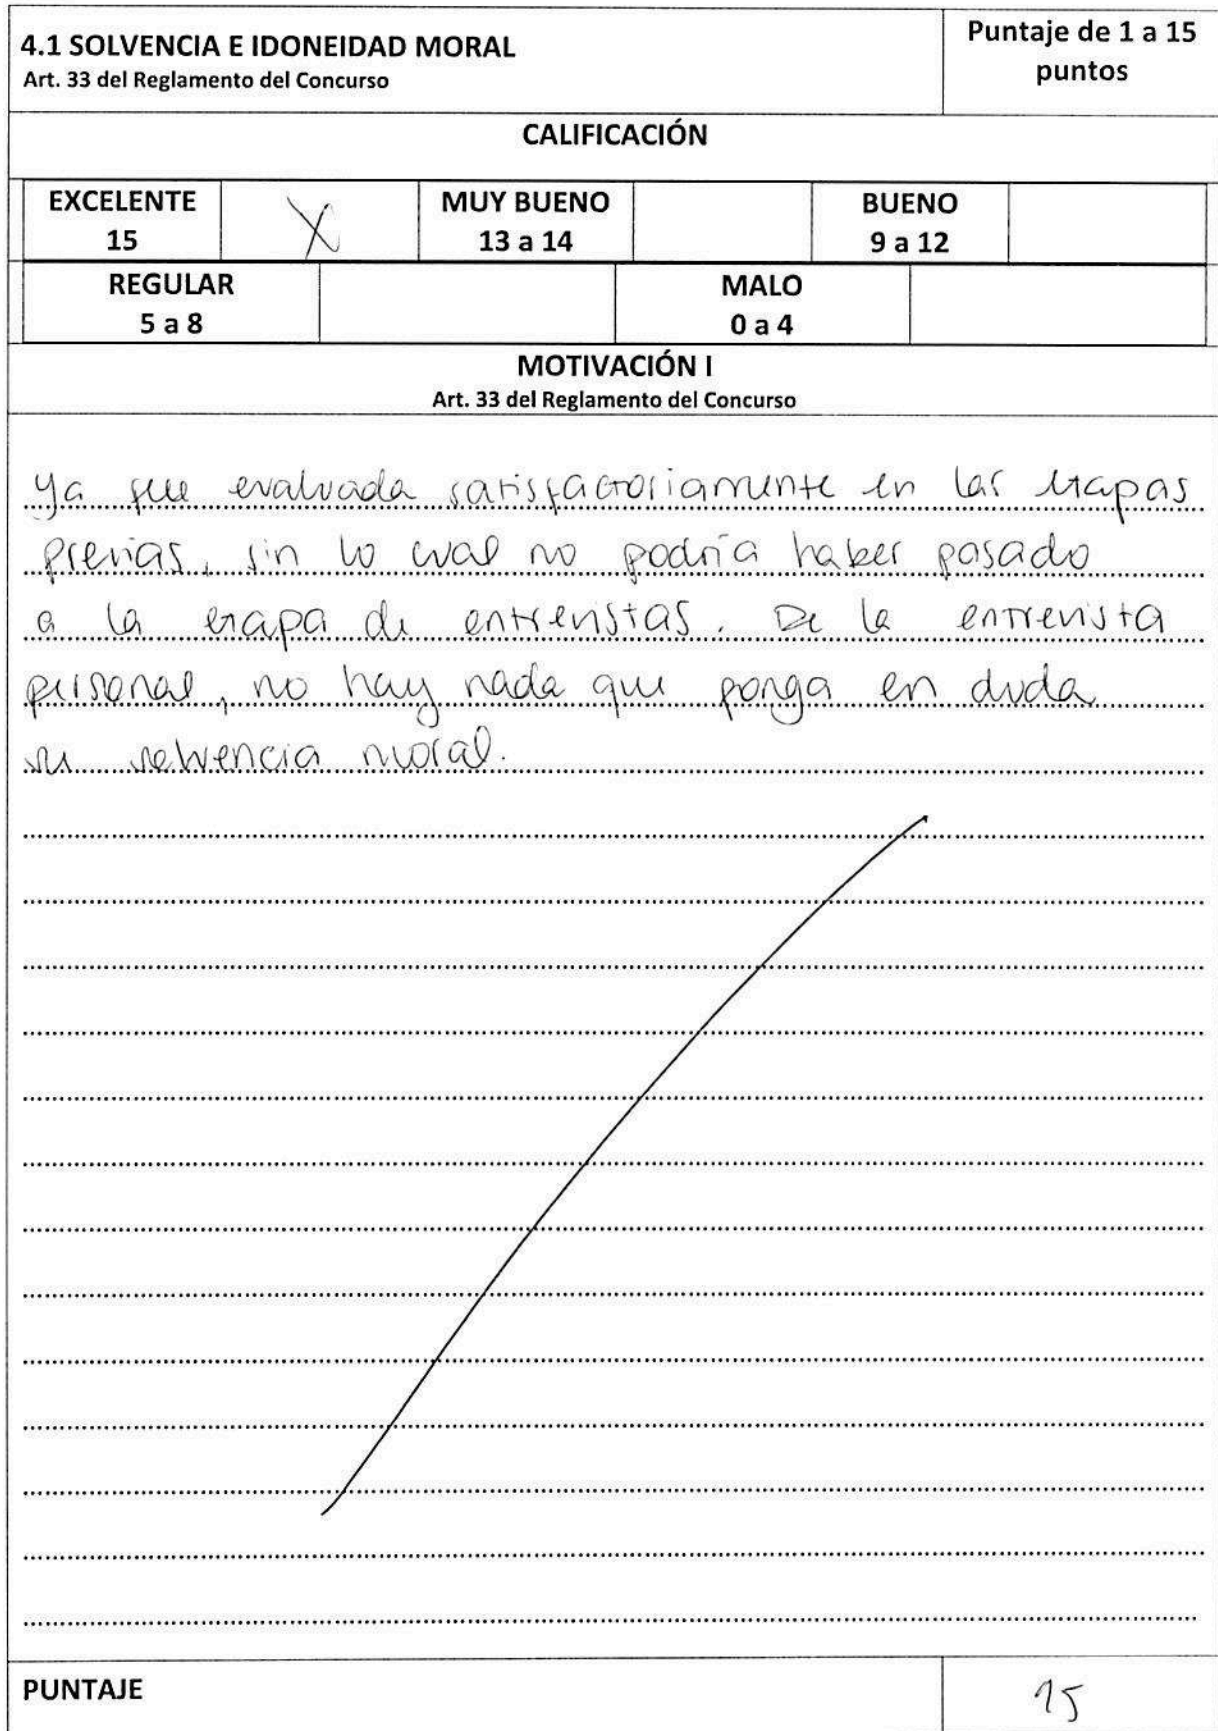 4.1 SOLVENCIA E IDONEIDAD MORAL
Art. 33 del Reglamento del Concurso
Puntaje de 1 a 15
puntos
CALIFICACIÓN
EXCELENTE
15
X
MUY BUENO
13 a 14
BUENO
9 a 12
REGULAR
5 a 8
MALO
0 a 4
MOTIVACIÓN I
Art. 33 del Reglamento del Concurso
Ya fue evaluada satisfactoriamente en las etapas
previas, sin lo cual no podría haber pasado
a la etapa de entrevistas. De la entrevista
personal, no hay nada que ponga en duda
su solvencia moral.
PUNTAJE
15